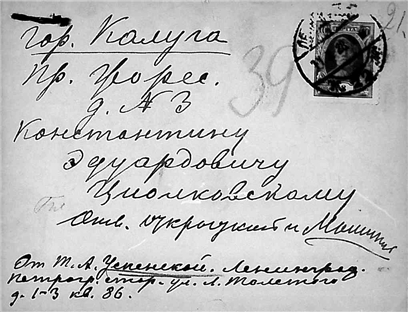 гор. Калуга
21.
39
Пр. Жорес.
д. № 3
Константину
Эдуардовичу
Циолковскому
От Т. А. Успенской. Ленинград.
Петрогр. стор. ул. Л. Толстого
д. 1-3 кв. 86.